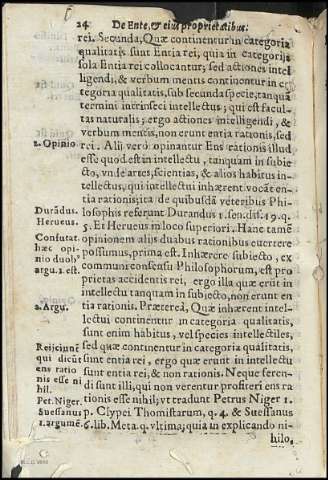 24 De Ente, & eius proprietatibus:
rei. Secunda, Quæ continentur in categoria
qualitatis sunt Entia rei, quia in categorijs
sola Entia rei collocantur; sed actiones intel
ligendi, & verbum mentis continentur in ca
tegoria qualitatis, sub secunda specie, tanquã
termini intrinseci intellectus; qui est facul-
tas naturalis; ergo actiones intelligendi, &
verbum mentis, non erunt entia rationis, sed
2. Opinio
rei. Alij verò opinantur Ens rationis illud
esse quod est in intellectu, tanquam in subie
cto, vnde artes, scientias, & alios habitus in-
tellectus, qui intellectui inhærent vocãt en-
tia rationis; ita de quibusdã veteribus Phi-
Durãdus.
losophis referunt Durandus 1. sen. dis. 19. q.
Herueus.
5. Et Herueus in loco superiori. Hanc tamẽ
Confutat.
opinionem alijs duabus rationibus euertere
hæc opi-
possumus, prima est. Inhærere subiecto, ex
nio duob9
communi consensu Philosophorum, est pro
argu. 1. est.
prietas accidentis rei, ergo illa quæ erũt in
intellectu tanquam in subiecto, non erunt en
2. Argu.
tia rationis. Prætereà, Quæ inhærent intel-
lectui continentur in categoria qualitatis,
sunt enim habitus, vel species intellectiles,
Reijciunt
sed quæ continentur in categoria qualitatis,
qui dicũt
sunt entia rei, ergo quæ erunt in intellectu
ens ratio
sunt entia rei, & non rationis. Neque feren-
nis esse ni
di sunt illi, qui non verentur profiteri ens ra
hil.
Pet. Niger.
tionis esse nihil, vt tradunt Petrus Niger 1.
Suessanus
p. Clypei Thomistarum, q. 4. & Suessanus
1. argumẽ.
6. lib. Meta. q. vltima; quia in explicando ni-
hilo,